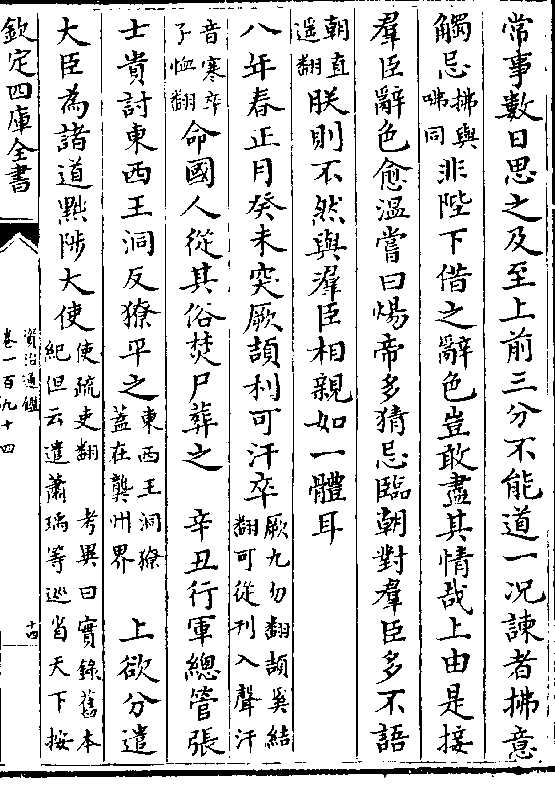 常事數日思之及至上前三分不能道一况諫者拂意
觸忌拂與咈同非陛下借之辭色豈敢盡其情哉上由是接
羣臣辭色愈溫嘗曰煬帝多猜忌臨朝對羣臣多不語
朝直遥翻朕則不然與羣臣相親如一體耳
八年春正月癸未突厥頡利可汗卒厥九勿翻頡奚結翻可從刋入聲汗
音寒卒子恤翻命國人從其俗焚尸葬之　辛丑行軍總管張
士貴討東西王洞反獠平之東西王洞獠蓋在龔州界　上欲分遣
大臣為諸道黜陟大使使疏吏翻　考異曰實錄舊本紀但云遣蕭瑀等巡省天下按
欽定四庫全書
資治通鑑
卷一百九十四
十四